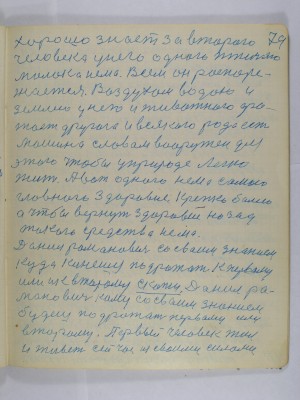 хорошо знает за второго 79
человека у него одного птичьего
молока нема. Всем он распоре-
жается. Воздухом водою и
землею у него и животного
хотает другога и всякого рода ест
машина словам вооружен для
этого чтобы у природе легко
жит. А вот одного нема самого
главного здаровие крепко было
а чтобы вернут здаровие назад
такого средства немо.
Данил романович со своим знанием
куда кинешся подражат к первому
или к второму скажи Данил ра-
манович кому со своим знанием
будиш подражат первому или
второму. Первый человек жил
и живет сейчас и своими силами